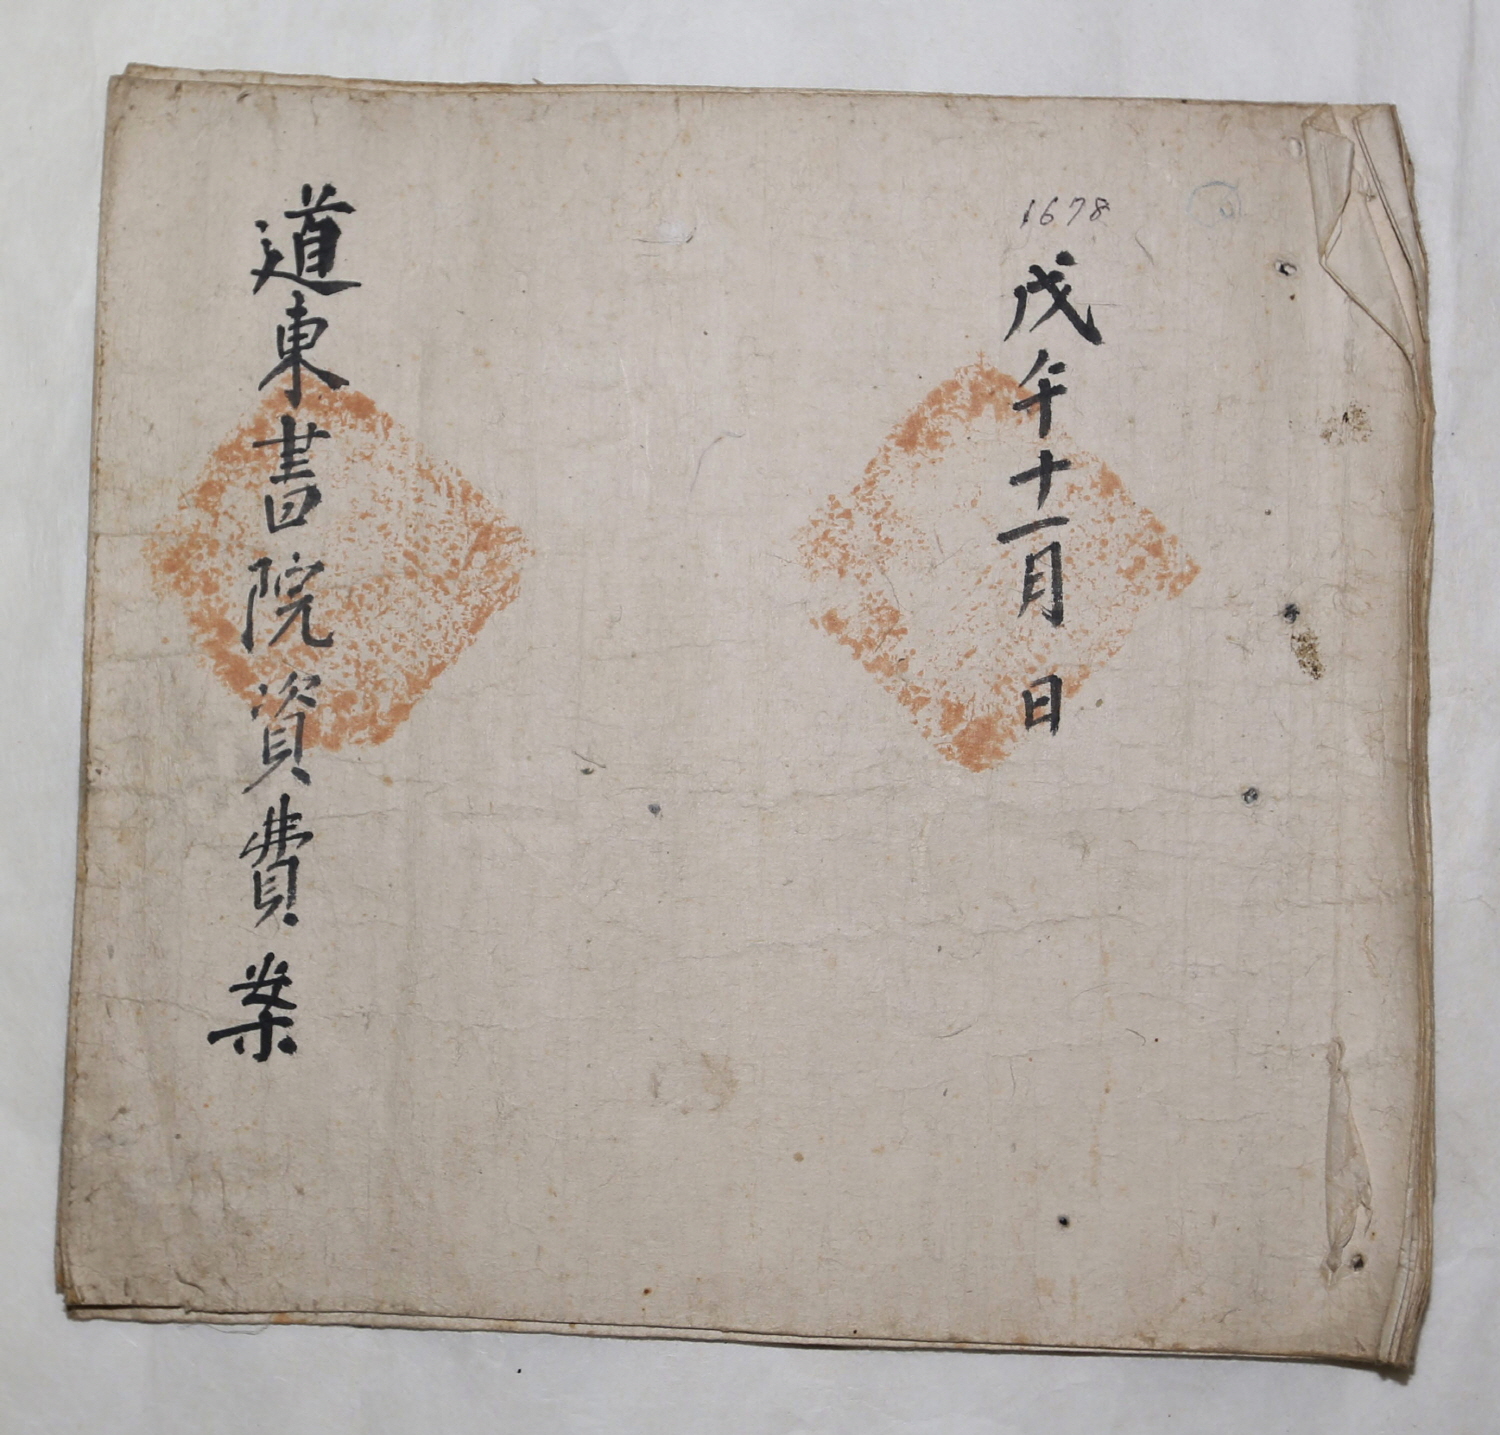 1678
戊午十一月 日
道東書院資費案